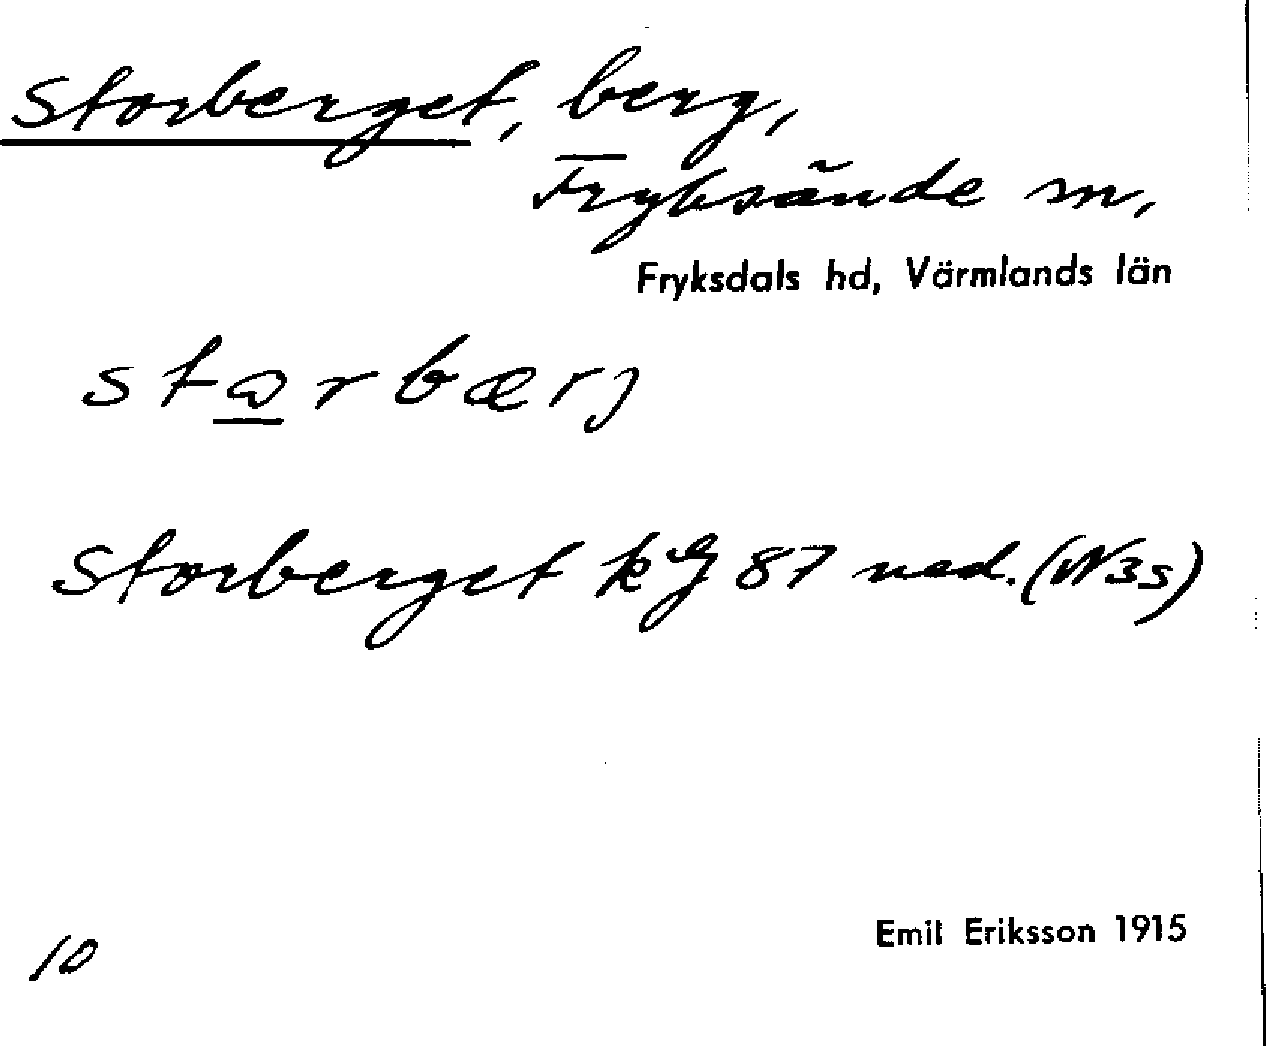 Storberget, berg,
Fryksände sn,
Fryksdals hd, Värmlands län
storbærj
Storberget kg 87 ned. (N3s)
Emil Eriksson 1915
10